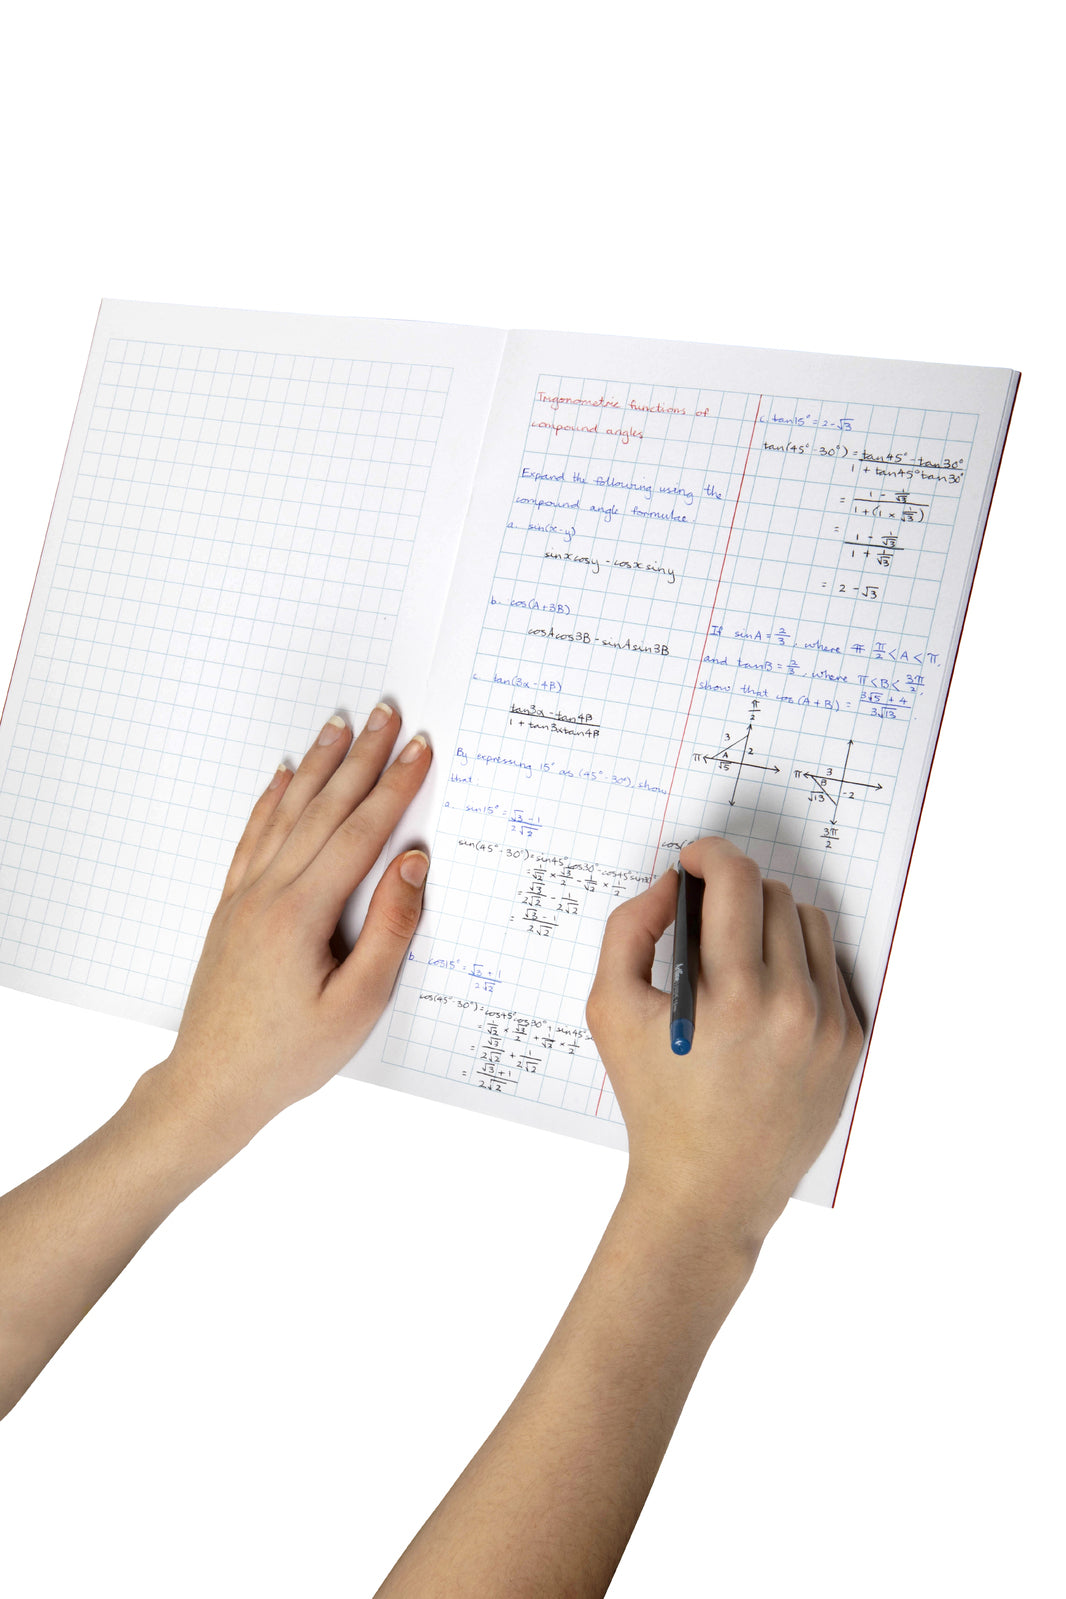 Trigonometric functions of
compound angles
Expand the following using the
compound angle formulae.
a. sin(x-y)
sinxcosy - cosxsiny
b. cos(A+3B)
cosAcos3B - sinAsin3B
c. tan(3x - 4B)
tan3x - tan4B
1 + tan3xtan4B
By expressing 15° as (45° - 30°), show
that:
a. sin15° = √3 - 1
2√2
sin(45° - 30°) = sin45°cos30° - cos45°sin30°
= 1/√2 × √3/2 - 1/√2 × 1/2
= √3/2√2 - 1/2√2
= √3 - 1
2√2
b. cos15° = √3 + 1
2√2
cos(45° - 30°) = cos45°cos30° + sin45°
= 1/√2 × √3/2 + 1/√2 × 1/2
= √3/2√2 + 1/2√2
= √3 + 1
2√2
c. tan15° = 2 - √3
tan(45° - 30°) = tan45° - tan30°
1 + tan45°tan30°
= 1 - 1/√3
1 + (1 × 1/√3)
= 1 - 1/√3
1 + 1/√3
= 2 - √3
If sinA = 2/3, where π/2 < A < π,
and tanB = 2/3, where π < B < 3π/2,
show that cos(A + B) = 3√5 + 4
3√13.
π/2
3
2
π
A
√5
π
3
B
√13
-2
3π/2
cos(